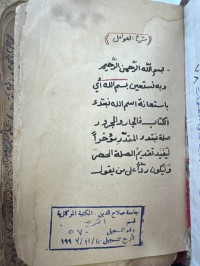 (شرح العوامل)
بسم الله الرحمن الرحيم
وبه نستعين بسم الله أي
باستعانة اسم الله نبتدء
الكتاب فالجار والمجرور
صلة نبتدء المقدر مؤخراً
ليفيد تقديم الصلة الحصر
فيكون رداً على من يقول
جامعة صلاح الدين - المكتبة المركزية
رقم التسجيل
تاريخ التسجيل